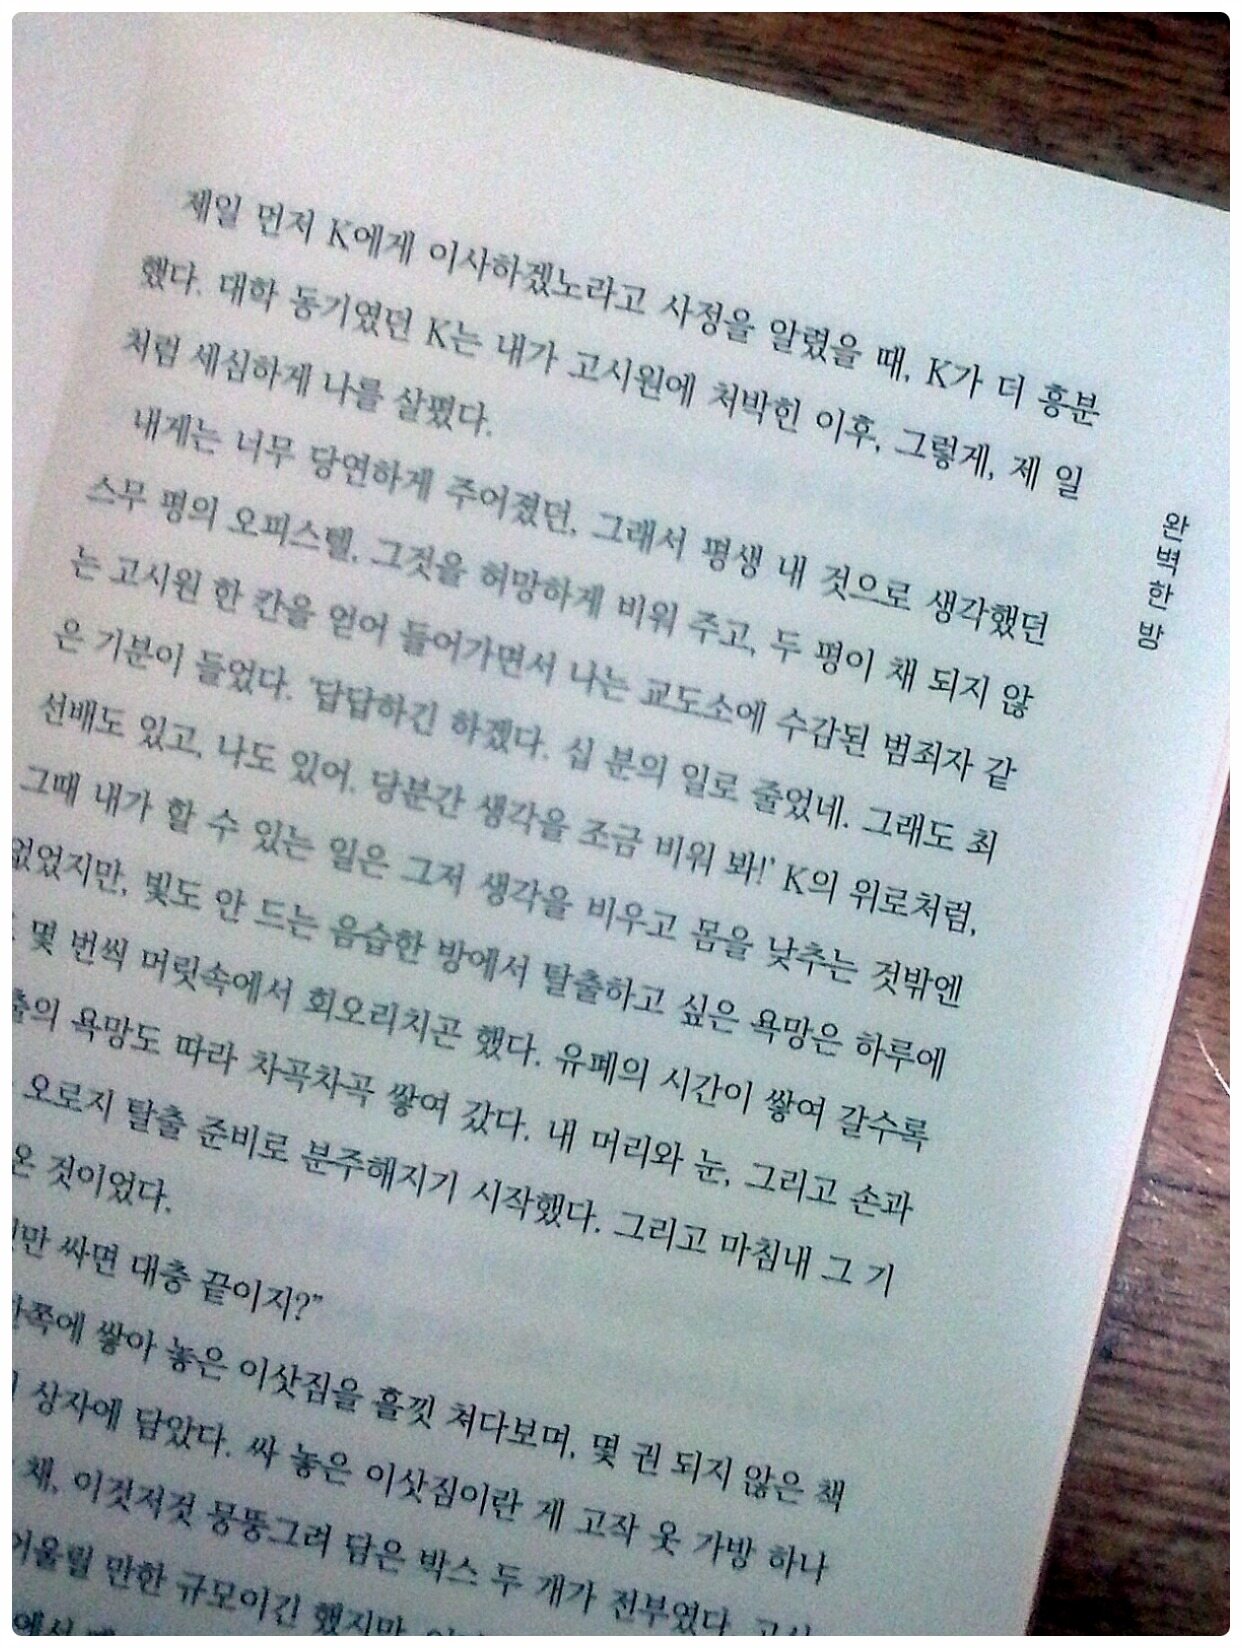 제일 먼저 K에게 이사하겠노라고 사정을 알렸을 때, K가 더 흥분
했다. 대학 동기였던 K는 내가 고시원에 처박힌 이후, 그렇게, 제 일
처럼 세심하게 나를 살폈다.
내게는 너무 당연하게 주어졌던, 그래서 평생 내 것으로 생각했던
스무 평의 오피스텔, 그것을 허망하게 비워 주고, 두 평이 채 되지 않
는 고시원 한 칸을 얻어 들어가면서 나는 교도소에 수감된 범죄자 같
은 기분이 들었다. ‘답답하긴 하겠다. 십 분의 일로 줄었네. 그래도 최
선배도 있고, 나도 있어. 당분간 생각을 조금 비워 봐!’ K의 위로처럼,
그때 내가 할 수 있는 일은 그저 생각을 비우고 몸을 낮추는 것밖엔
없었지만, 빛도 안 드는 음습한 방에서 탈출하고 싶은 욕망은 하루에
몇 번씩 머릿속에서 회오리치곤 했다. 유폐의 시간이 쌓여 갈수록
출의 욕망도 따라 차곡차곡 쌓여 갔다. 내 머리와 눈, 그리고 손과
오로지 탈출 준비로 분주해지기 시작했다. 그리고 마침내 그 기
온 것이었다.
만 싸면 대충 끝이지?”
한쪽에 쌓아 놓은 이삿짐을 흘낏 쳐다보며, 몇 권 되지 않은 책
상자에 담았다. 싸 놓은 이삿짐이란 게 고작 옷 가방 하나
채, 이것저것 뭉뚱그려 담은 박스 두 개가 전부였다.
어울릴 만한 규모이긴 했지만,
완벽한 방